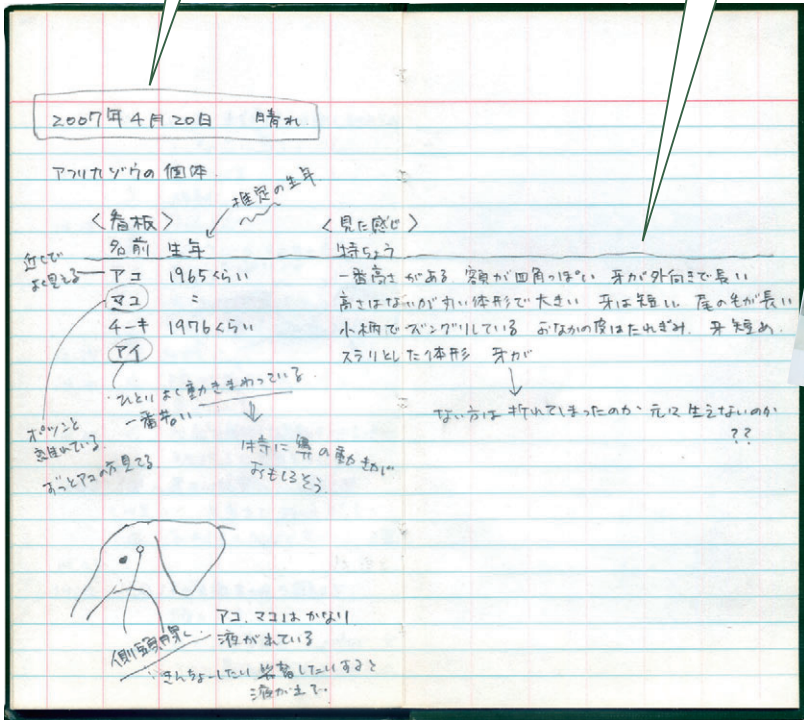 2007年4月20日 晴れ
アフリカゾウの個体
推定の生年
〈看板〉 〈見た感じ〉
名前 生年 特ちょう
近くでよく見える
アコ 1965くらい 一番高さがある 額が四角っぽい 牙が外向きで長い
マコ 〃 高さはないが丸い体形で大きい 牙は短い 尾の毛が長い
チーキ 1976くらい 小柄でズングリしている おなかの皮はたれぎみ. 牙短め.
アイ スラリとした体形 牙が
ひとりよく動きまわっている.
一番若い
ない方は折れてしまったのか 元々生えないのか
??
ポツンと
離れている.
ずっとアコの方見てる
特に鼻の動きが
おもしろそう.
アコ、マコはかなり
液がれている
側頭腺
きんちょーしたり 興奮したりすると
液が出て.